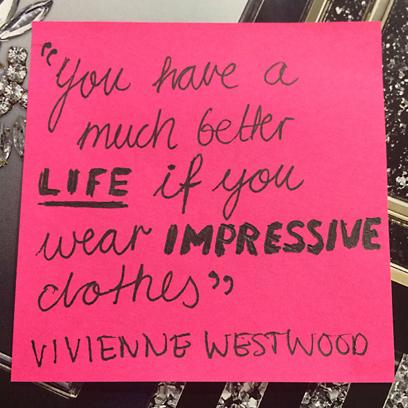 “You have a
much better
LIFE if you
wear IMPRESSIVE
clothes”
VIVIENNE WESTWOOD